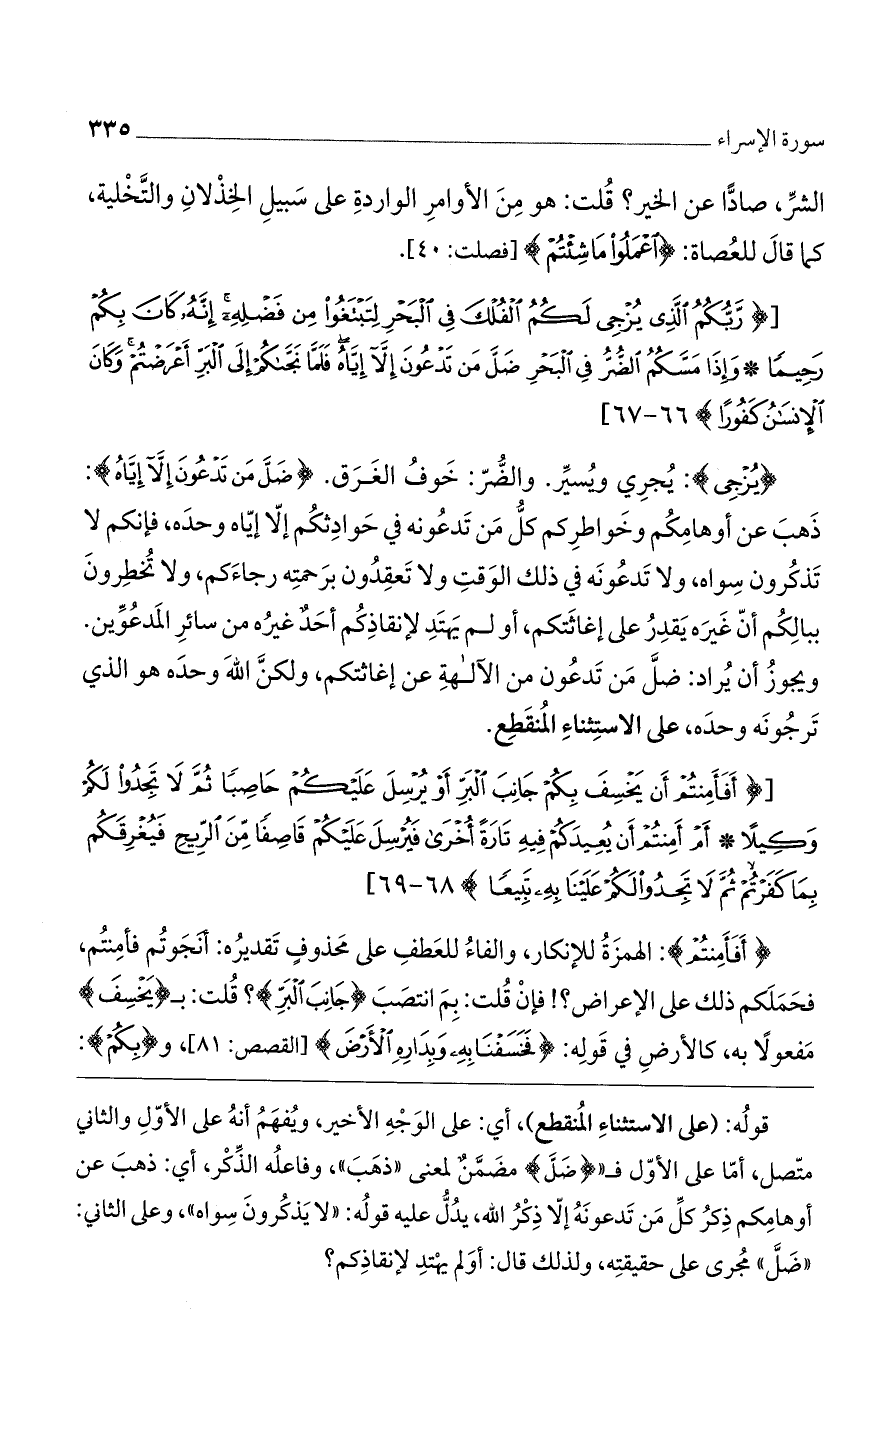 سورة الإسراء ٣٣٥
الشرِّ، صادًّا عن الخير؟ قُلت: هو مِنَ الأوامرِ الواردةِ على سَبيلِ الخِذْلانِ والتَّخْلية،
كما قالَ للعُصاة: ﴿ٱعْمَلُوا۟ مَا شِئْتُمْ﴾ [فصلت: ٤٠].
[﴿رَّبُّكُمُ ٱلَّذِى يُزْجِى لَكُمُ ٱلْفُلْكَ فِى ٱلْبَحْرِ لِتَبْتَغُوا۟ مِن فَضْلِهِۦٓ ۚ إِنَّهُۥ كَانَ بِكُمْ
رَحِيمًا * وَإِذَا مَسَّكُمُ ٱلضُّرُّ فِى ٱلْبَحْرِ ضَلَّ مَن تَدْعُونَ إِلَّآ إِيَّاهُ ۖ فَلَمَّا نَجَّىٰكُمْ إِلَى ٱلْبَرِّ أَعْرَضْتُمْ ۚ وَكَانَ
ٱلْإِنسَٰنُ كَفُورًا﴾ ٦٦-٦٧]
﴿يُزْجِى﴾: يُجرِي ويُسيِّر. والضُّرّ: خَوفُ الغَرَق. ﴿ضَلَّ مَن تَدْعُونَ إِلَّآ إِيَّاهُ﴾:
ذَهبَ عن أوهامِكُم وخَواطرِكم كلُّ مَن تَدعُونه في حَوادِثكُم إلّا إيّاه وحدَه، فإنكم لا
تَذكُرون سِواه، ولا تَدعُونَه في ذلك الوَقتِ ولا تَعقِدُون برَحمتِه رجاءَكم، ولا تُخطِرونَ
ببالِكُم أنّ غَيرَه يَقدِرُ على إغاثَتكم، أو لـم يَهتَدِ لإنقاذِكُم أحَدٌ غيرُه من سائرِ المَدعُوِّين.
ويجوزُ أن يُراد: ضلَّ مَن تَدعُون من الآلـٰهةِ عن إغاثتكم، ولكنَّ اللهَ وحدَه هو الذي
تَرجُونَه وحدَه، على الاستِثناءِ المُنقَطِع.
[﴿أَفَأَمِنتُمْ أَن يَخْسِفَ بِكُمْ جَانِبَ ٱلْبَرِّ أَوْ يُرْسِلَ عَلَيْكُمْ حَاصِبًا ثُمَّ لَا تَجِدُوا۟ لَكُمْ
وَكِيلًا * أَمْ أَمِنتُمْ أَن يُعِيدَكُمْ فِيهِ تَارَةً أُخْرَىٰ فَيُرْسِلَ عَلَيْكُمْ قَاصِفًا مِّنَ ٱلرِّيحِ فَيُغْرِقَكُم
بِمَا كَفَرْتُمْ ۙ ثُمَّ لَا تَجِدُوا۟ لَكُمْ عَلَيْنَا بِهِۦ تَبِيعًا﴾ ٦٨-٦٩]
﴿أَفَأَمِنتُمْ﴾: الهمزَةُ للإنكار، والفاءُ للعَطفِ على محَذوفٍ تَقديرُه: أنَجَوتُم فأمِنتُم،
فحَمَلَكم ذلك على الإعراض؟! فإنْ قُلت: بِمَ انتصَبَ ﴿جَانِبَ ٱلْبَرِّ﴾؟ قُلت: بـ﴿يَخْسِفَ﴾
مَفعولًا به، كالأرضِ في قَولِه: ﴿فَخَسَفْنَا بِهِۦ وَبِدَارِهِ ٱلْأَرْضَ﴾ [القصص: ٨١]، و﴿بِكُمْ﴾:
قولُه: (على الاستثناءِ المُنقطع)، أي: على الوَجْهِ الأخير، ويُفهَمُ أنهُ على الأوّلِ والثاني
متّصل، أمّا على الأوّل فـ«﴿ضَلَّ﴾ مضمَّنٌ لمعنى «ذهَبَ»، وفاعلُه الذِّكْر، أي: ذهبَ عن
أوهامِكم ذِكرُ كلِّ مَن تَدعونَهُ إلّا ذِكْرُ الله، يدُلُّ عليه قولُه: «لا يَذكُرونَ سِواه»، وعلى الثاني:
«ضَلَّ» مُجرى على حقيقتِه، ولذلك قال: أوَلم يهْتدِ لإنقاذِكم؟